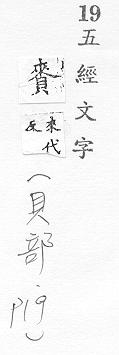 19 五經文字
賚
來代
反
(貝部 P19)